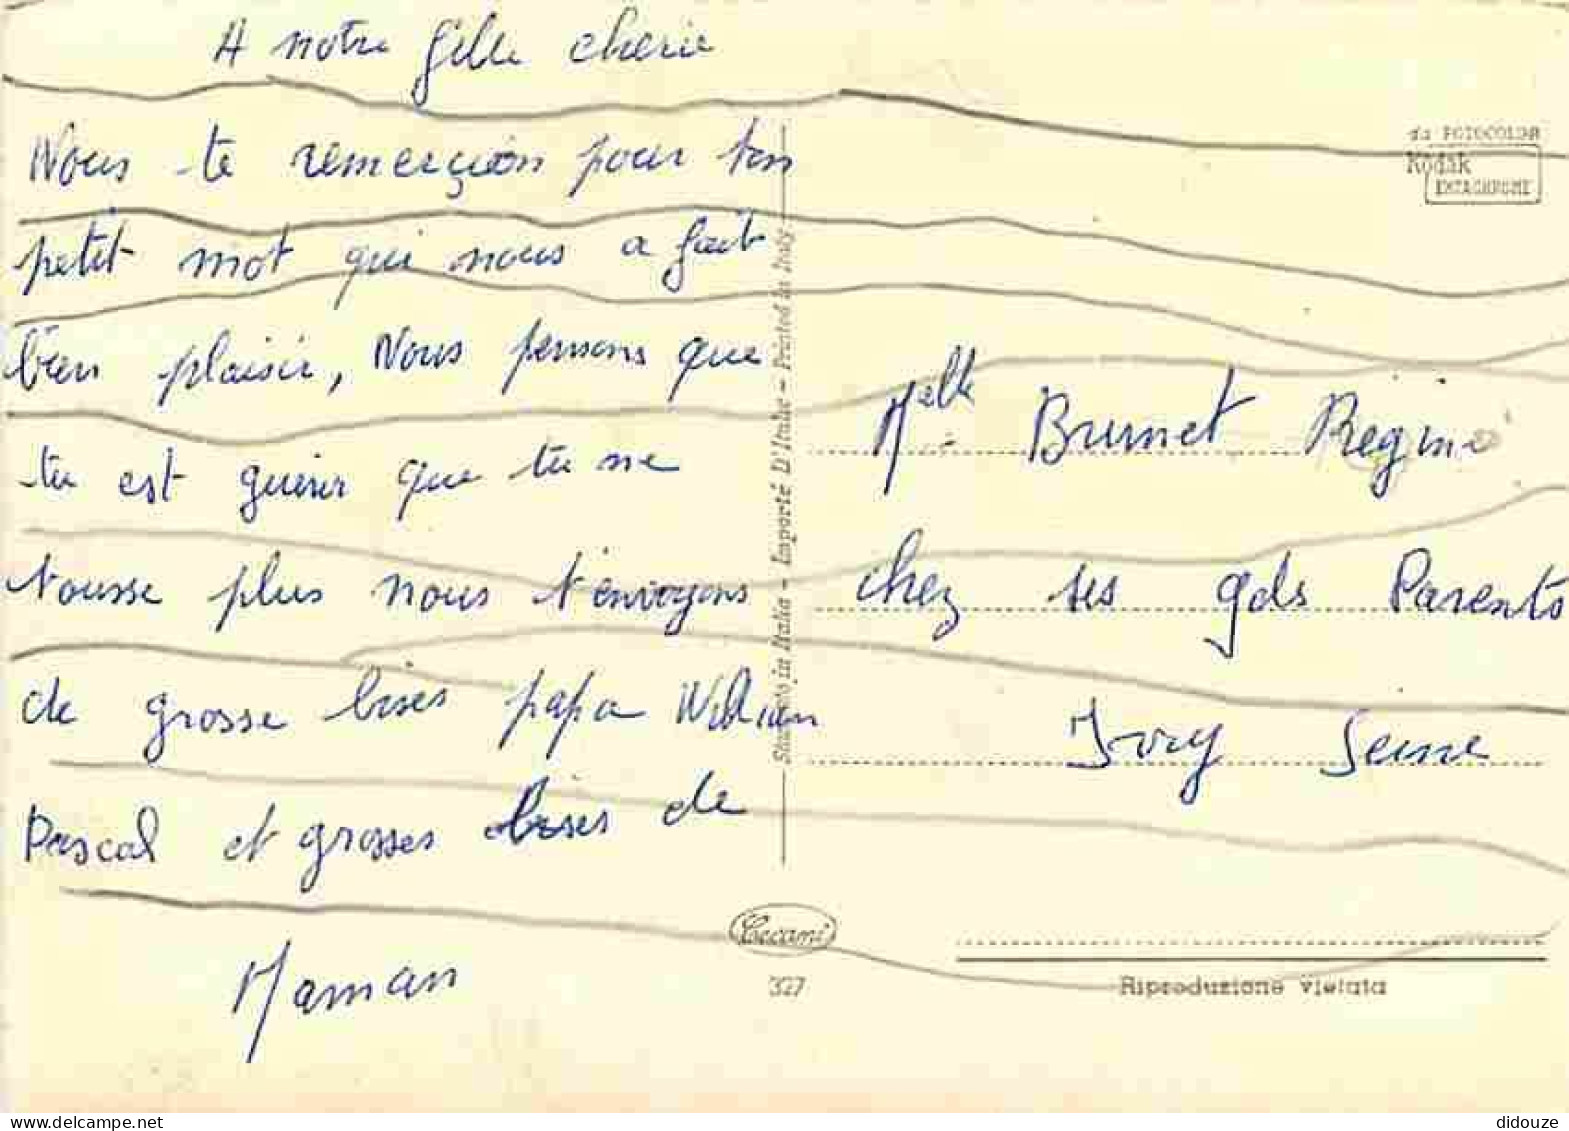 A notre fille cherie
Nous te remerçion pour ton
petit mot qui nous a fait
bien plaisir, Nous pensons que
tu est guérir que tu ne
tousse plus nous t'envoyons
de grosse bises papa William
Pascal et grosses bises de
Maman
Stampato in Italia - Importé D'Italie - Printed in Italy
da FOTOCOLOR
Kodak
EKTACHROME
Melle Brunet Regine
chez ses gds Parents
Ivry Seine
Cecami
327
Riproduzione vietata
didouze